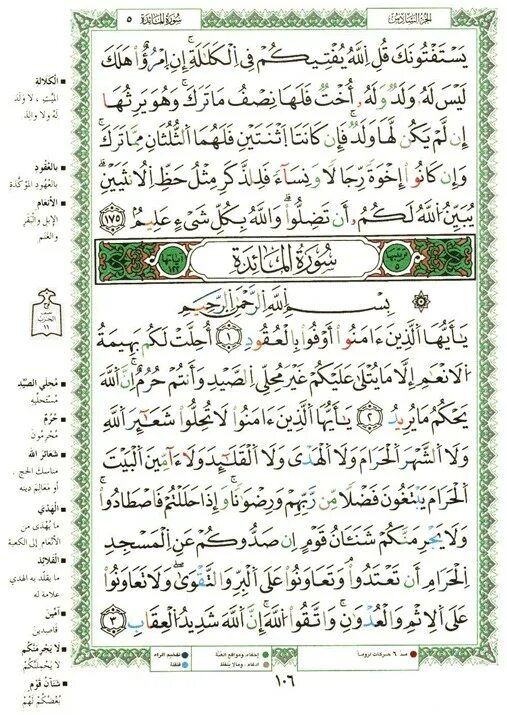 الجزء السادس
سورة المائدة ٥
يَسْتَفْتُونَكَ قُلِ اللَّهُ يُفْتِيكُمْ فِي الْكَلَالَةِ إِنِ امْرُؤٌا هَلَكَ
لَيْسَ لَهُ وَلَدٌ وَلَهُ أُخْتٌ فَلَهَا نِصْفُ مَا تَرَكَ وَهُوَ يَرِثُهَا
إِن لَّمْ يَكُن لَّهَا وَلَدٌ فَإِن كَانَتَا اثْنَتَيْنِ فَلَهُمَا الثُّلُثَانِ مِمَّا تَرَكَ
وَإِن كَانُوا إِخْوَةً رِّجَالًا وَنِسَاءً فَلِلذَّكَرِ مِثْلُ حَظِّ الْأُنثَيَيْنِ
يُبَيِّنُ اللَّهُ لَكُمْ أَن تَضِلُّوا وَاللَّهُ بِكُلِّ شَيْءٍ عَلِيمٌ ١٧٥
ترتيبها ٥ سورة المائدة آياتها ١٢٢
بِسْمِ اللَّهِ الرَّحْمَٰنِ الرَّحِيمِ
يَا أَيُّهَا الَّذِينَ ءَامَنُوا أَوْفُوا بِالْعُقُودِ ١ أُحِلَّتْ لَكُم بَهِيمَةُ
الْأَنْعَامِ إِلَّا مَا يُتْلَىٰ عَلَيْكُمْ غَيْرَ مُحِلِّي الصَّيْدِ وَأَنتُمْ حُرُمٌ إِنَّ اللَّهَ
يَحْكُمُ مَا يُرِيدُ ٢ يَا أَيُّهَا الَّذِينَ ءَامَنُوا لَا تُحِلُّوا شَعَائِرَ اللَّهِ
وَلَا الشَّهْرَ الْحَرَامَ وَلَا الْهَدْيَ وَلَا الْقَلَائِدَ وَلَا ءَامِّينَ الْبَيْتَ
الْحَرَامَ يَبْتَغُونَ فَضْلًا مِّن رَّبِّهِمْ وَرِضْوَانًا وَإِذَا حَلَلْتُمْ فَاصْطَادُوا
وَلَا يَجْرِمَنَّكُمْ شَنَآنُ قَوْمٍ أَن صَدُّوكُمْ عَنِ الْمَسْجِدِ
الْحَرَامِ أَن تَعْتَدُوا وَتَعَاوَنُوا عَلَى الْبِرِّ وَالتَّقْوَىٰ وَلَا تَعَاوَنُوا
عَلَى الْإِثْمِ وَالْعُدْوَانِ وَاتَّقُوا اللَّهَ إِنَّ اللَّهَ شَدِيدُ الْعِقَابِ ٣
الكلالة
الميّت، لا وَلَدَ
لَهُ ولا والِدَ
بالعُقُود
بالعُهُود المُوَكَّدة
الأنعام
الإبل والبَقَر
والغَنَم
الحزب
١١
مُحلّي الصَّيْد
مُسْتَحلّيهِ
حُرُمٌ
مُحْرِمُونَ
شعائر الله
مناسك الحج،
أو مَعَالِمَ دينه
الهَدْي
ما يُهْدَى من
الأنْعَام إلى الكعبة
القلائد
ما يقلّد به الهدي
علامة له
آمّين
قاصدين
لا يَجْرِمَنَّكم
لا يَحْمِلَنَّكُمْ
شنآن قَوْم
بُغْضُكُمْ لَهُمْ
مد ٦ حركات لزوماً
إخفاء، ومواقع الغنة
إدغام، ومالا يلفظ
تفخيم الراء
قلقلة
١٠٦